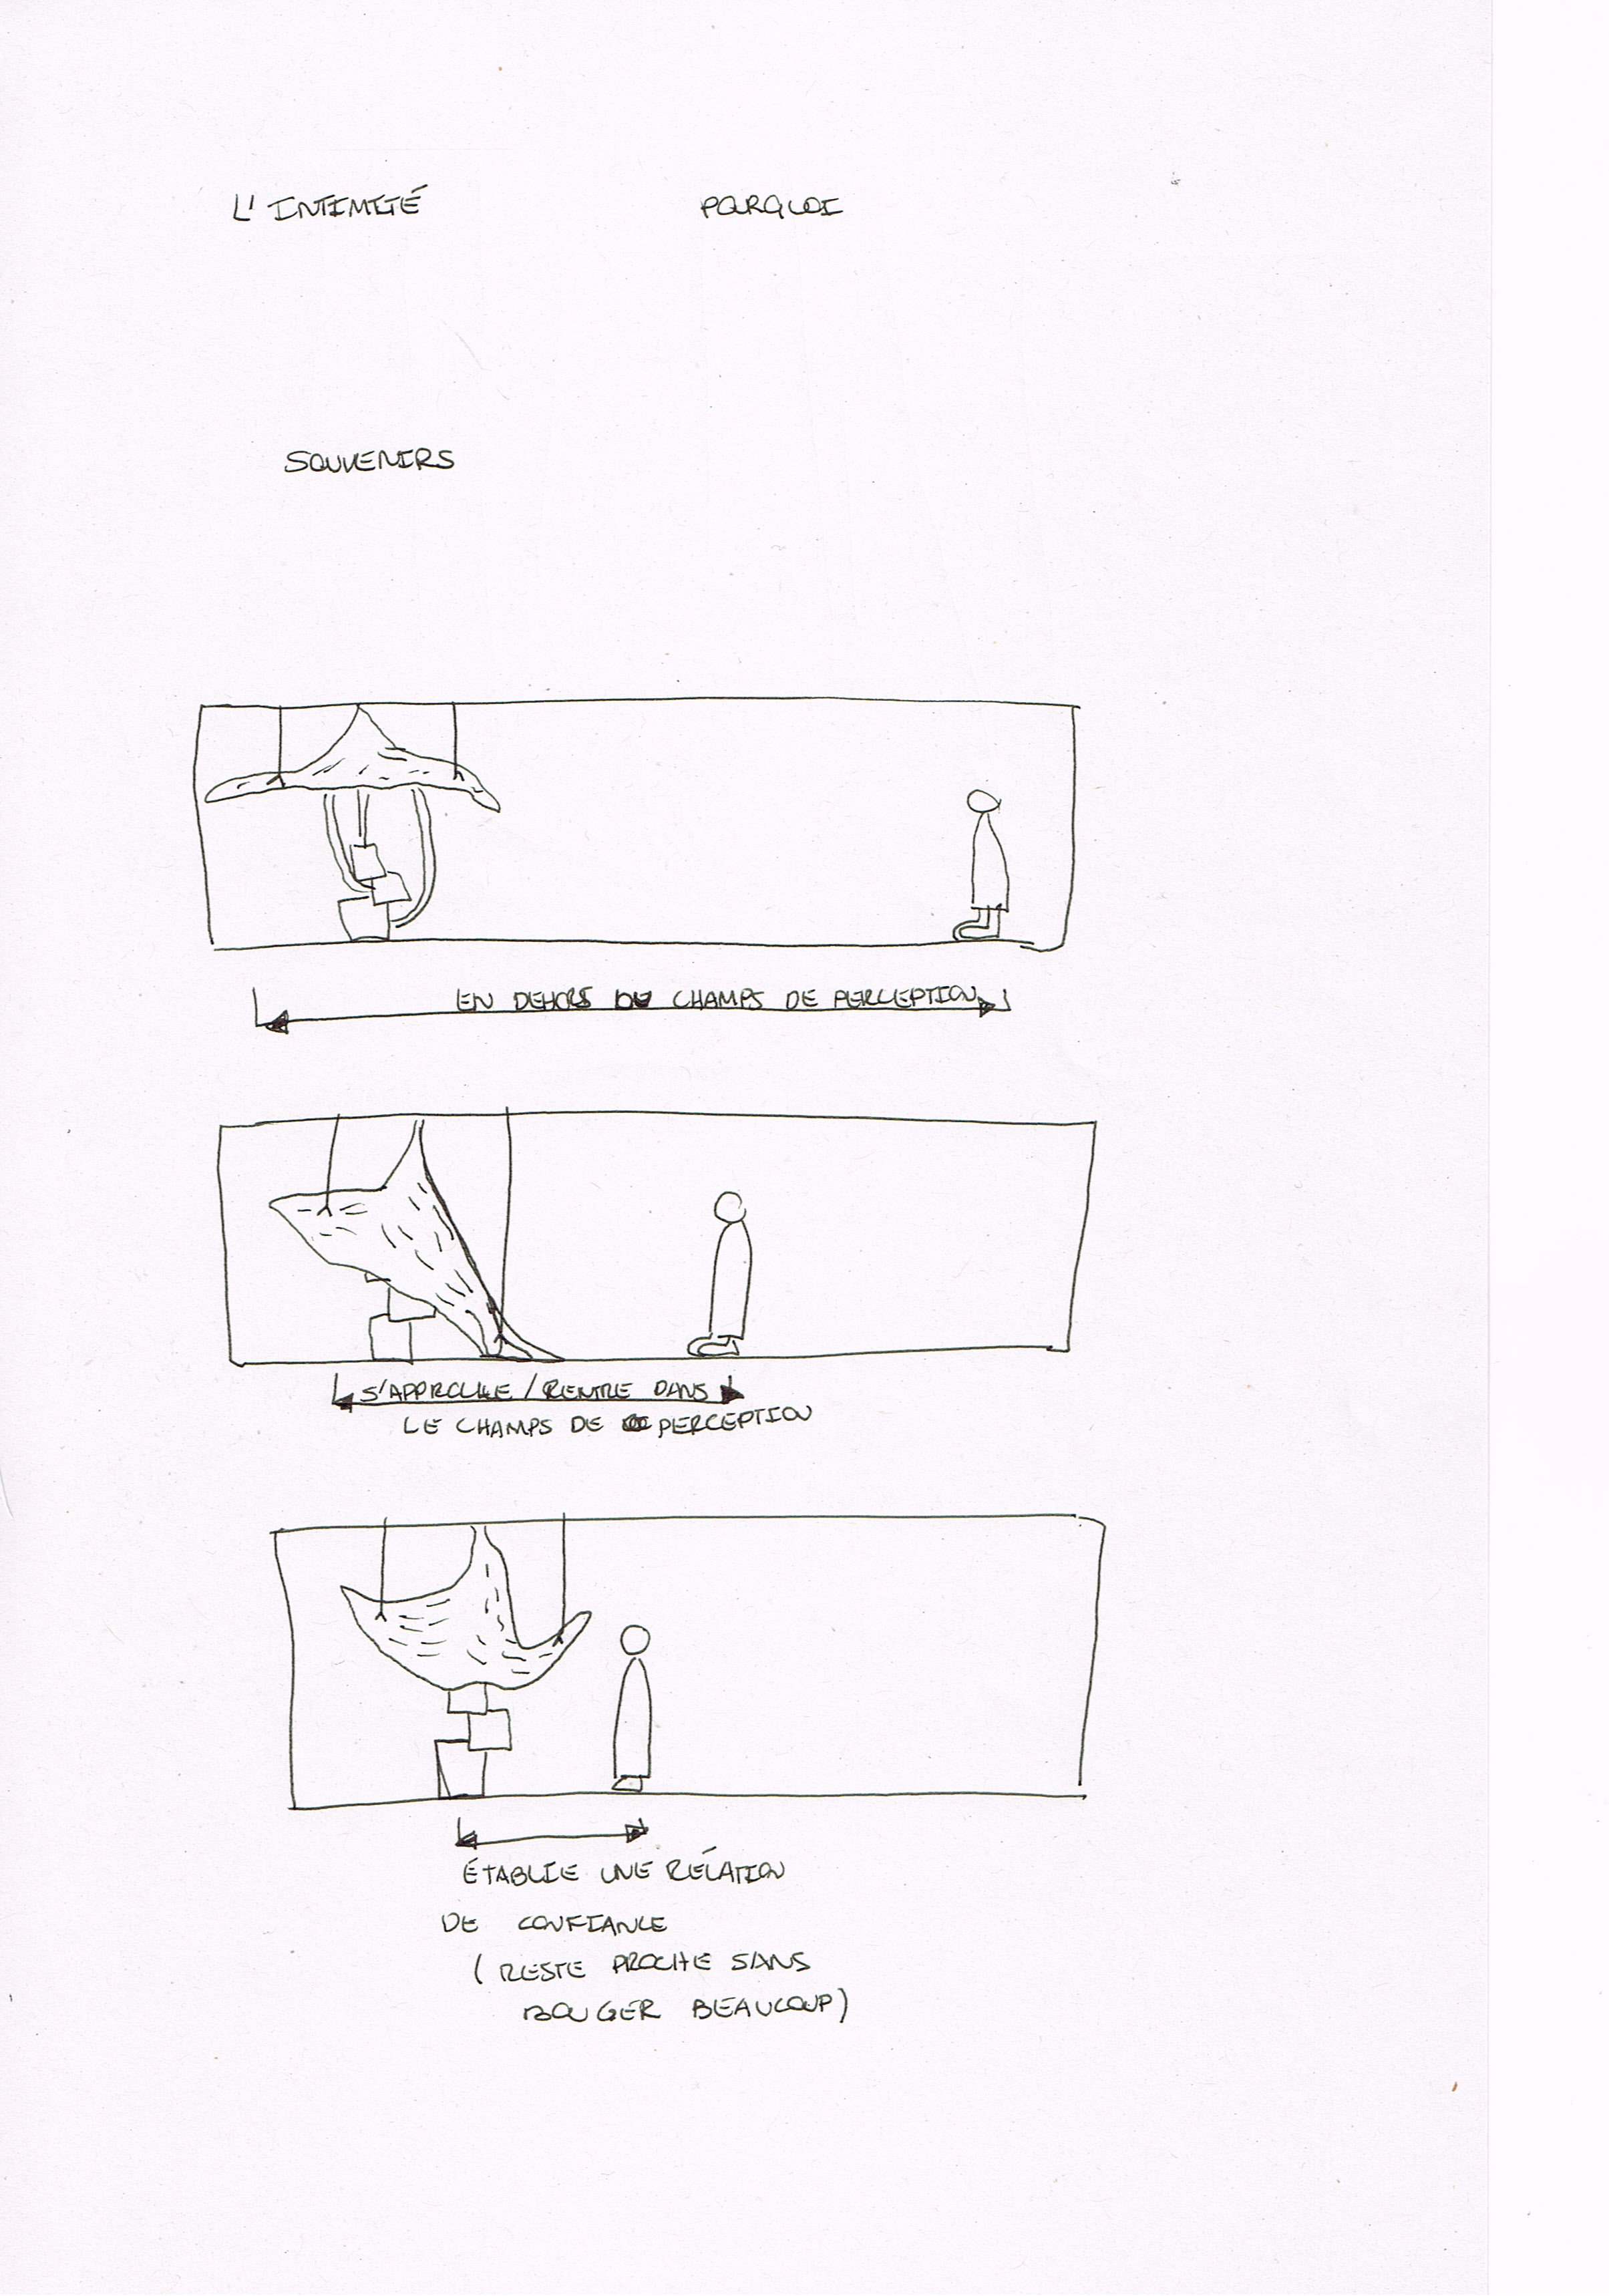 L'INTIMITÉ
POURQUOI
SOUVENIRS
EN DEHORS DU CHAMPS DE PERCEPTION
S'APPROCHE / RENTRE DANS
LE CHAMPS DE PERCEPTION
ÉTABLIE UNE RÉLATION
DE CONFIANCE
(RESTE PROCHE SANS
BOUGER BEAUCOUP)